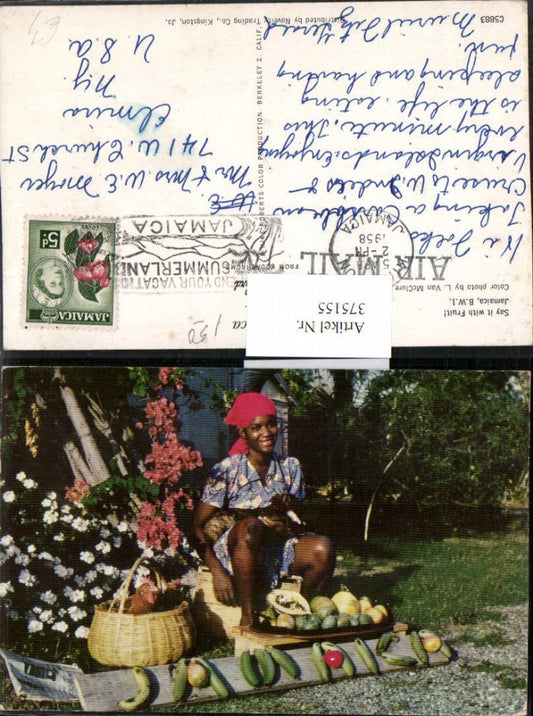 Say it with Fruit!
Jamaica, B.W.I.
Color photo by L. Van McClure
C5883
Distributed by Novelty Trading Co., Kingston, Ja.
ROBERTS COLOR PRODUCTION, BERKELEY 2, CALIF.
FROM KODACHROME
AIR MAIL
Hi Folks
Taking a Caribbean
Cruise to W. Indies &
Virgin Islands Enjoying
every minute. This
is the life. eating
sleeping and having
fun.
Mr & Mrs W. E.
741 W. Church St
Elmira
N.y.
U. S. a.
JAMAICA
2 - PM
1958
SPEND YOUR VACATION
SUMMERLAND
JAMAICA
5D
JAMAICA
Artikel Nr.
375155
150